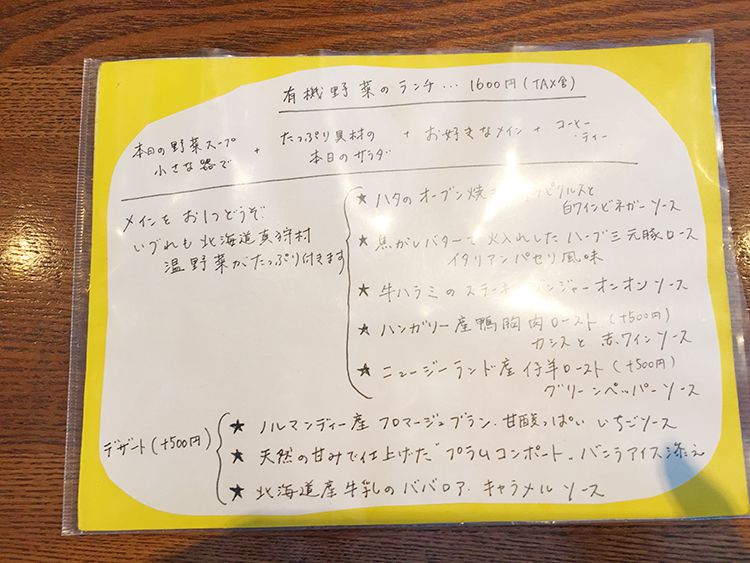 有機野菜のランチ… 1600円(TAX含)
本日の野菜スープ
小さな器で
+
たっぷり具材の
本日のサラダ
+ お好きなメイン +
コーヒー
・ティー
メインを お1つどうぞ
いづれも 北海道真狩村
温野菜がたっぷり付きます
★ ハタのオーブン焼
ピリルスと
白ワインビネガーソース
★ 焦がしバターで火入れした ハーブ三元豚ロース
イタリアンパセリ風味
★ 牛ハラミのステーキ ジンジャーオニオンソース
★ ハンガリー産鴨胸肉ロースト (+500円)
カシスと赤ワインソース
★ ニュージーランド産仔羊ロースト (+500円)
グリーンペッパーソース
デザート(+500円)
★ ノルマンディー産 フロマージュブラン・甘酸っぱい いちごソース
★ 天然の甘みで仕上げた"プラムコンポート" バニラアイス添え
★ 北海道産牛乳のババロア・キャラメルソース